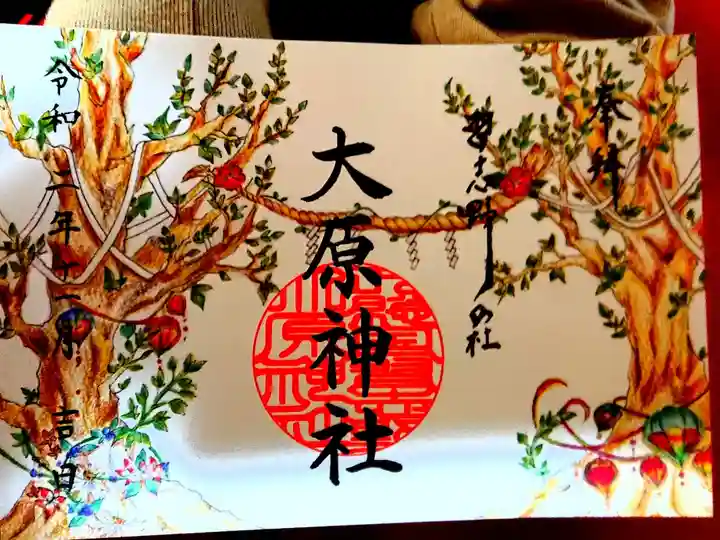 奉拝
習志野の社
大原神社
令和二年十一月吉日